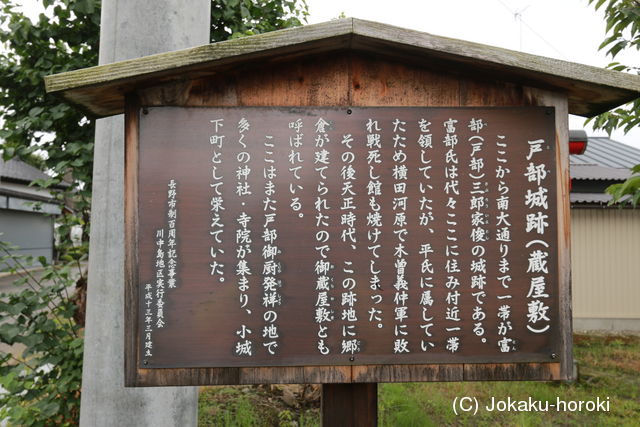 戸部城跡(蔵屋敷)
ここから南大通りまで一帯が富
部(戸部)三郎家俊の城跡である。
富部氏は代々ここに住み付近一帯
を領していたが、平氏に属してい
たため横田河原で木曽義仲軍に敗
れ戦死し館も焼けてしまった。
その後天正時代、この跡地に郷
倉が建てられたので御蔵屋敷とも
呼ばれている。
ここはまた戸部御厨発祥の地で
多くの神社・寺院が集まり、小城
下町として栄えていた。
長野市制百周年記念事業
川中島地区実行委員会
平成十三年三月建立
(C) Jokaku-horoki